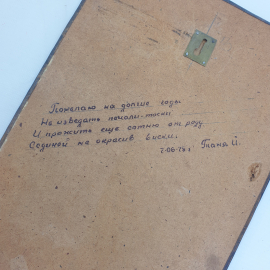 Пожелаю на долгие годы
Не изведать печали-тоски
И прожить еще сотню от роду
Сединой не окрасив виски.
7-06-75г